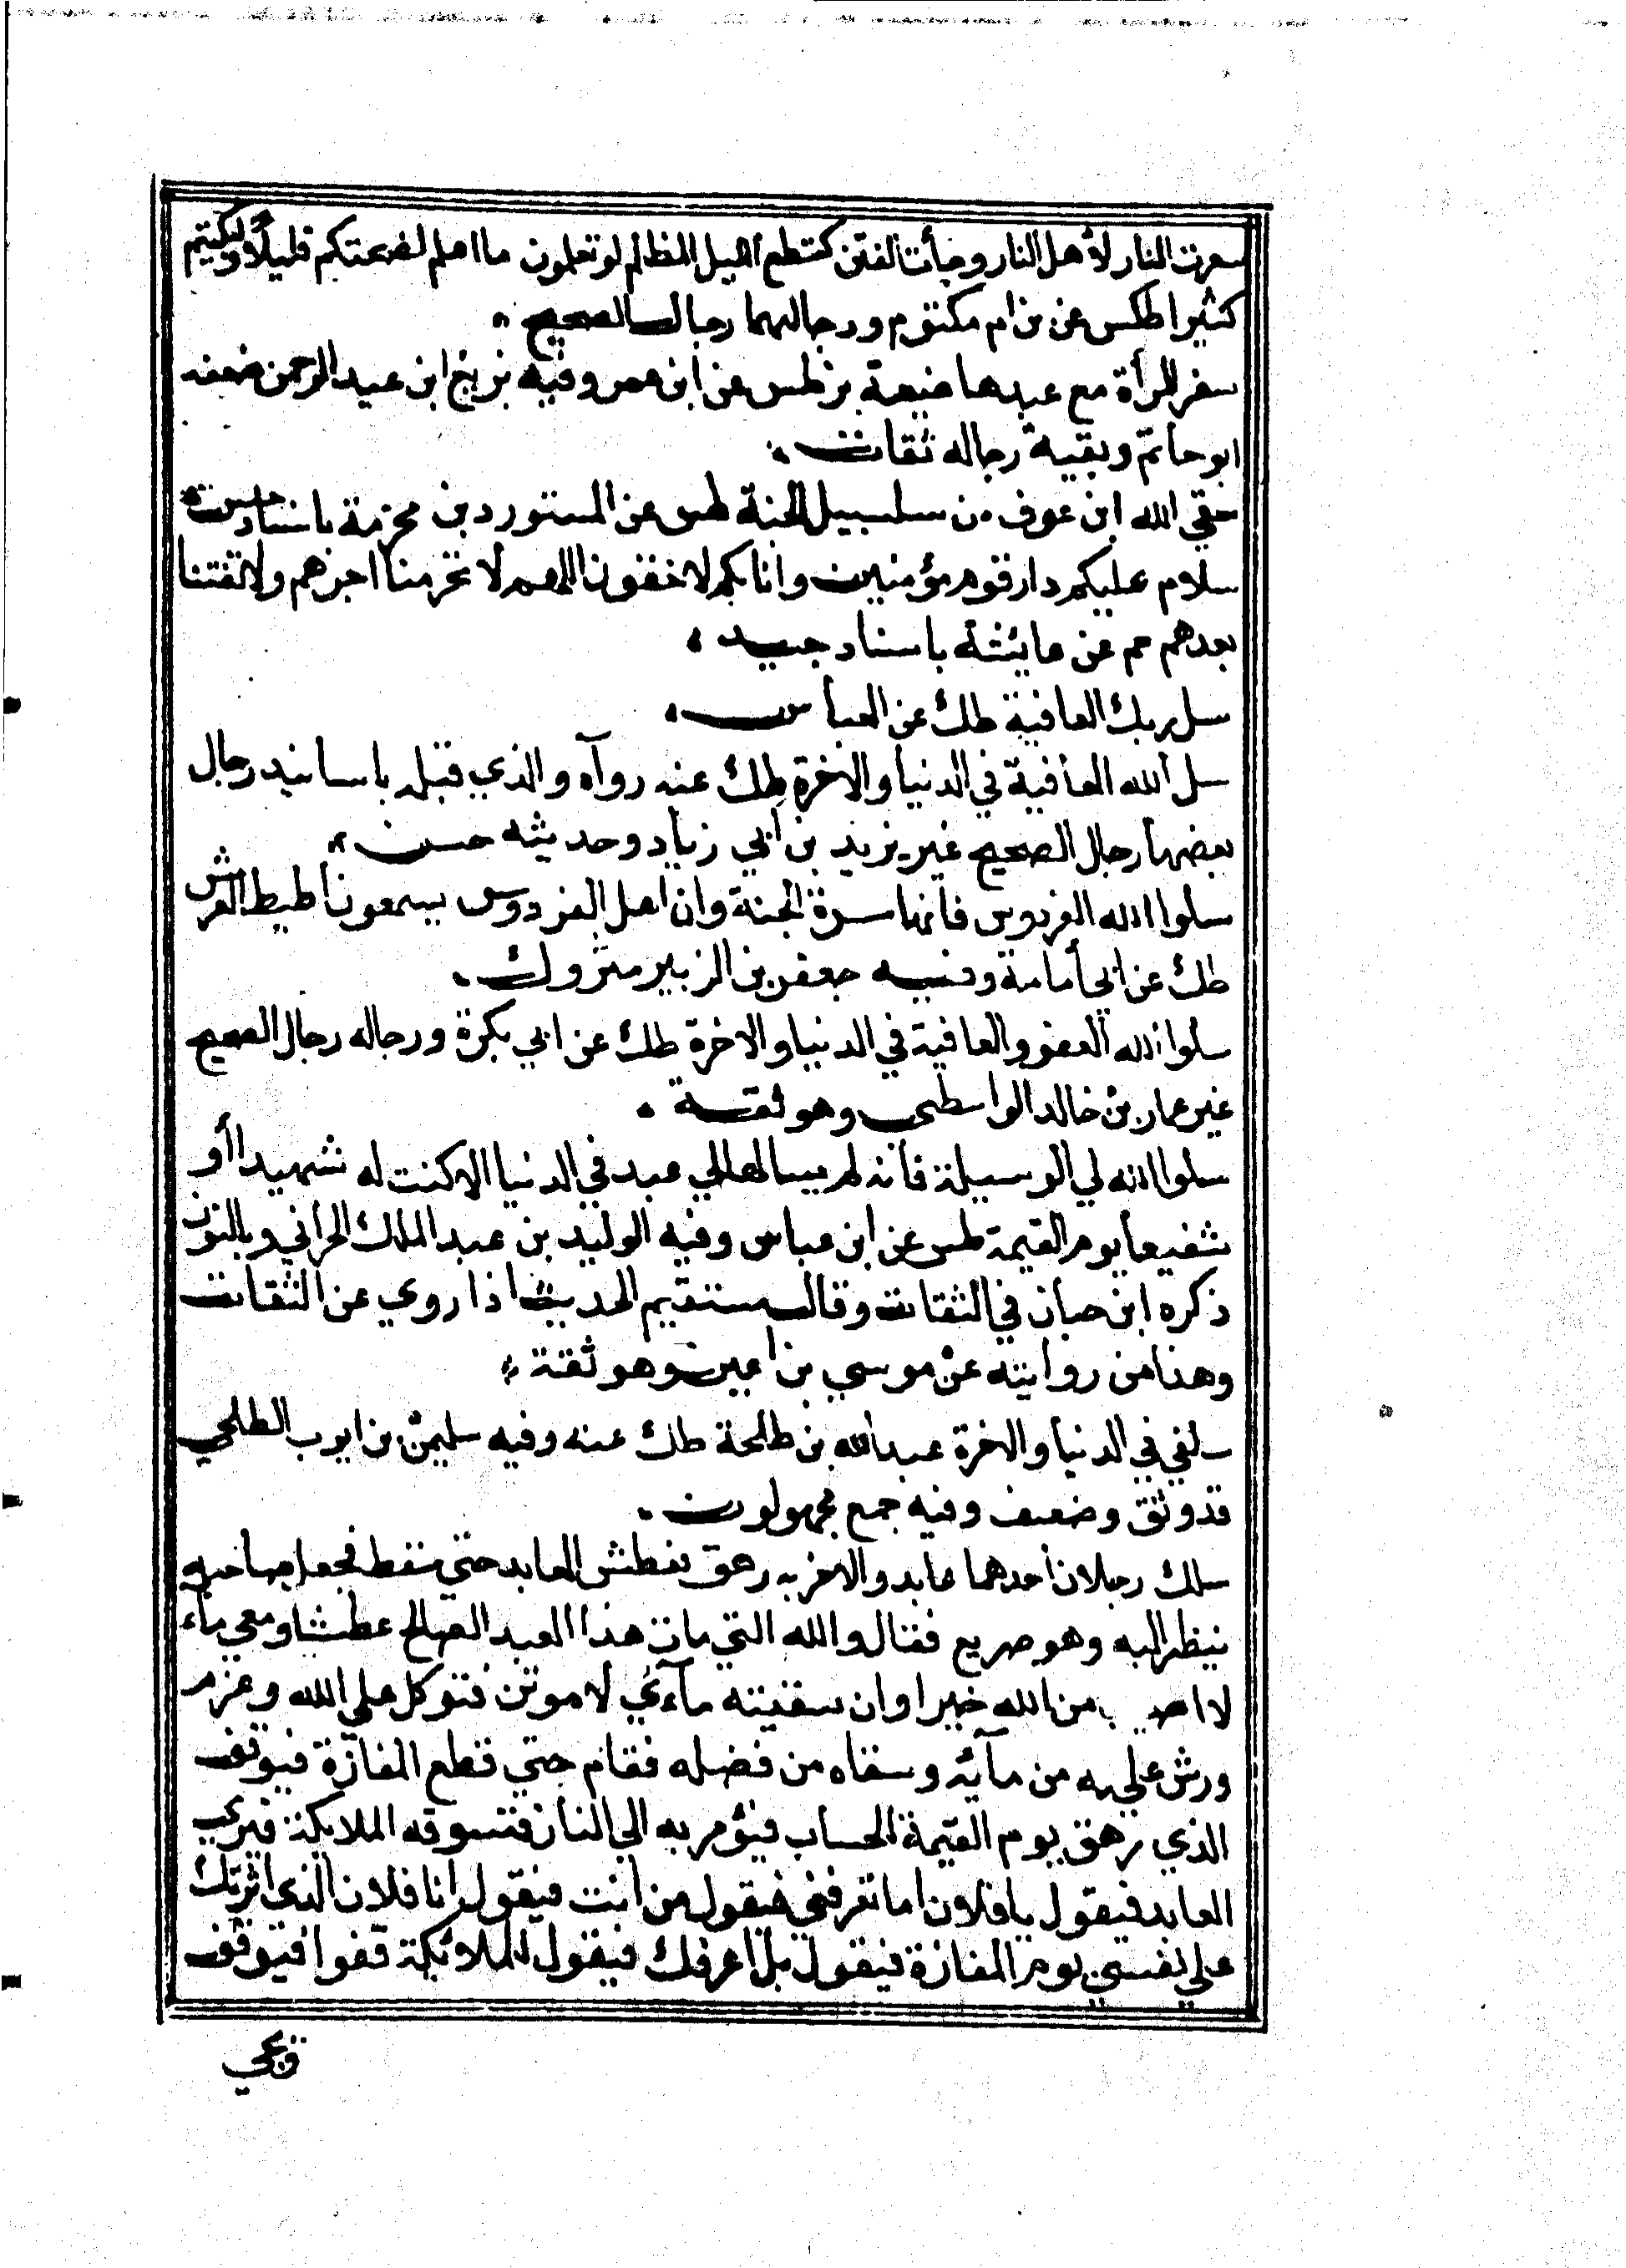 سعرت النار لأهل النار وجأت الفتن كتطع الليل المظالم لو تعلمون ما اعلم لضحكتكم قليلا ولبكيتم
كثيرا طكس عن بن ام مكتوم ورجالهما رجال الصحيح
سفر المرأة مع عبدها ضيعة بز طس عن ابن عمر وفيه بزيع ابن عبد الرحمن ضعفه
ابو حاتم وبقية رجاله ثقات
سقي الله ابن عوف من سلسبيل الجنة طس عن المستورد بن مخرمة باسناد حسن
سلام عليكم دار قوم مؤمنين وانا بكم لاحقون اللهم لا تحرمنا اجرهم ولا تفتنا
بعدهم حم عن عايشة باسناد جيد
سل ربك العافية طك عن العباس
سل الله العافية في الدنيا والاخرة طك عنه رواه والذي قبله باسانيد رجال
بعضها رجال الصحيح غير يزيد بن ابي زياد وحديثه حسن
سلوا الله الفردوس فانها سرة الجنة وان اهل الفردوس يسمعون اطيط العرش
طك عن ابي أمامة وفيه جعفر بن الزبير متروك
سلوا الله العفو والعافية في الدنيا والاخرة طك عن ابي بكرة ورجاله رجال الصحيح
غير عمار بن خالد الواسطي وهو ثقة
سلوا الله لي الوسيلة فانه لم يسالها لي عبد في الدنيا الا كنت له شهيدا أو
شفيعا يوم القيمة طس عن ابن عباس وفيه الوليد بن عبد الملك الحراني وبالنون
ذكره ابن حبان في الثقات وقال مستقيم الحديث اذا روي عن الثقات
وهذا من روايته عن موسي بن اعين وهو ثقة
سلفي في الدنيا والاخرة عبد الله بن طلحة طك عنه وفيه سليمن بن ايوب الطلحي
قد وثق وضعف وفيه جمع مجهولون
سلك رجلان أحدهما عابد والاخر به رهق فعطش العابد حتي سقط فجعل صاحبه
ينظر اليه وهو صريع فقال والله التي مات هذا العبد الصالح عطشا ومعي ماء
لا اصيب من الله خيرا وان سقيته مآءي لاموتن فتوكل علي الله وعزم
ورش عليه من مآئه وسقاه من فضله فقام حتي قطع المفازة فيوقف
الذي رهق يوم القيمة للحساب فيؤمر به الي النار فتسوقه الملايكة فيري
العابد فيقول يا فلان اما تعرفني فيقول من انت فيقول انا فلان الذي اثرتك
علي نفسي يوم المفازة فيقول بل اعرفك فيقول للملائكة قفوا فيوقف